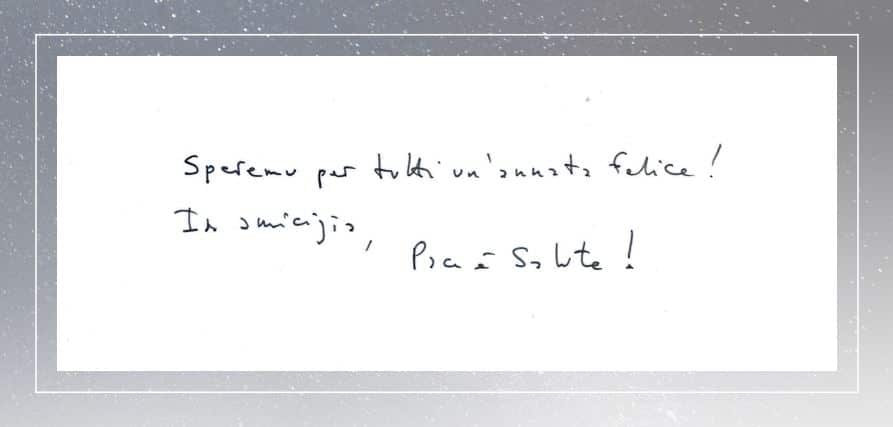 Speremu per tutti un'annata felice !
In amicizia,
Pace è Salute !